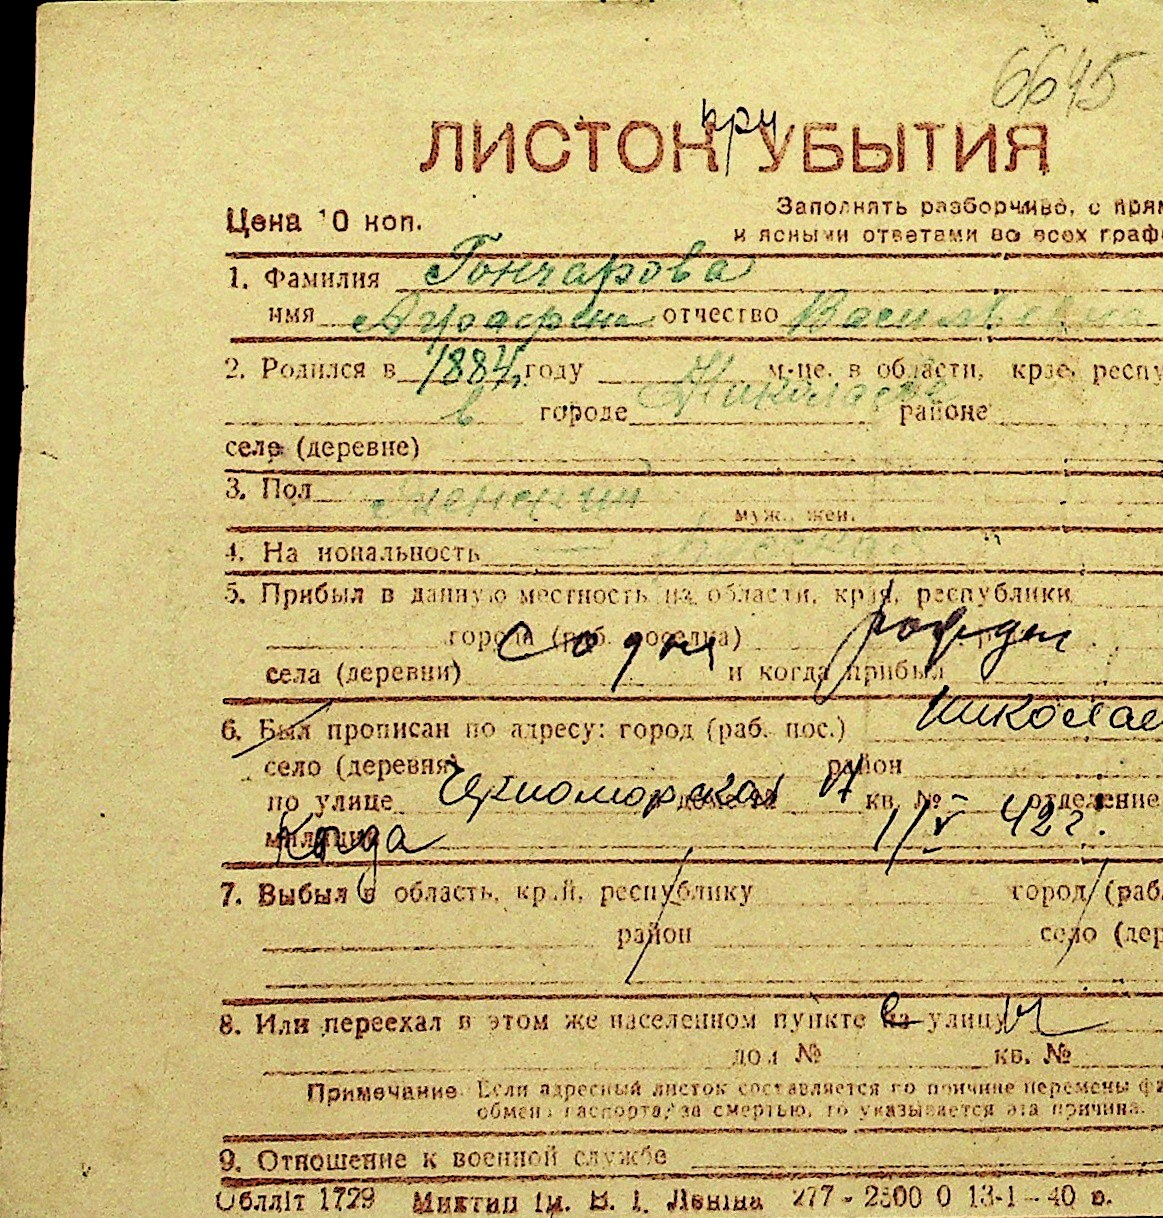 6645
при
ЛИСТОК УБЫТИЯ
Цена 10 коп.
Заполнять разборчиво, с прям
и ясными ответами во всех граф
1. Фамилия Гончарова
имя Аграфена отчество Васильевна
2. Родился в 1884 году м-це, в области, крае, респу
в городе Николаеве районе
село (деревне)
3. Пол женский
муж., жен.
4. Национальность
5. Прибыл в данную местность из области, края, республики
города (раб. поселка) с о дня рожден
села (деревни) и когда прибыл
6. Был прописан по адресу: город (раб. пос.) Николае
село (деревня) район
по улице Черноморская дом № 17 кв. № отделение
милиции Когда 1/V 42 г.
7. Выбыл в область, край, республику город (раб.
район село (дер
8. Или переехал в этом же населенном пункте на улицу
дом № кв. №
Примечание. Если адресный листок составляется по причине перемены фа
обмена паспорта, за смертью, то указывается эта причина.
9. Отношение к военной службе
Облліт 1729 Миктип ім. В. І. Леніна 277 - 2500 0 13-1-40 в.